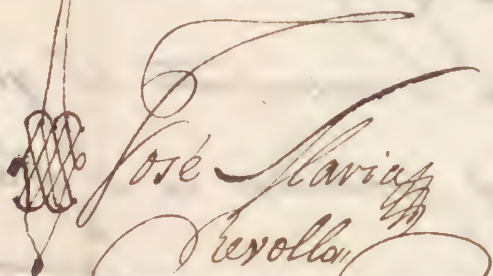 José Maria
Revolla